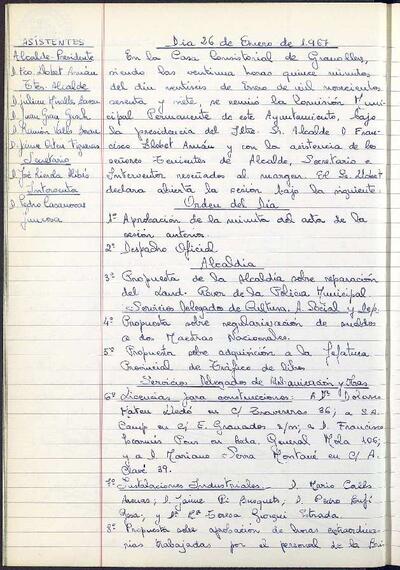 ASISTENTES
Alcalde-Presidente
D. Fco Llobet Arnán
Ttes Alcalde
D. Juan
D. Ramón Valls
D. Jaime Figueras
Secretario
D. José
Interventor
D. Pedro Casanovas
Día 26 de Enero de 1967
En la Casa Consistorial de Granollers,
siendo las veintiuna horas quince minutos
del día veintiseis de Enero de mil novecientos
sesenta y siete, se reunió la Comisión Muni-
cipal Permanente de este Ayuntamiento, bajo
la presidencia del Iltre. Sr. Alcalde D. Fran-
cisco Llobet Arnán y con la asistencia de los
señores Tenientes de Alcalde, Secretario e
Interventor reseñados al margen. El Sr. Llobet
declara abierta la sesión bajo la siguiente:
Orden del Día
1º Aprobación de la minuta del acta de la
sesión anterior.
2º Despacho Oficial
Alcaldía
3º Propuesta de la Alcaldía sobre reparación
del Land-Rover de la Policia Municipal
Servicios Delegados de Cultura, A. Social y Dep.
4º Propuesta sobre regularización de sueldos
a dos Maestras Nacionales.
5º Propuesta sobre adquisición a la Jefatura
Provincial de Tráfico de libros
Servicios Delegados de Urbanización y
6º Licencias para construcciones: A Dª Dolores
Mateu Lledó en C/ Traveseras 36; a S.A.
Camp en c/ E. Granados s/n; a D. Francisco
Pous en Avda. General Mola 106;
y a D. Mariano Serra Montané en C/ A.
Clavé 39.
7º Instalaciones Industriales.- D. Mario Carles
D. Jaime Pi Busquets, D. Pedro
Rosa; y Dª Mª Teresa Giorgui Estrada.
8º Propuesta sobre aprobación de horas extraordina-
rias trabajadas por el personal de la Bri-